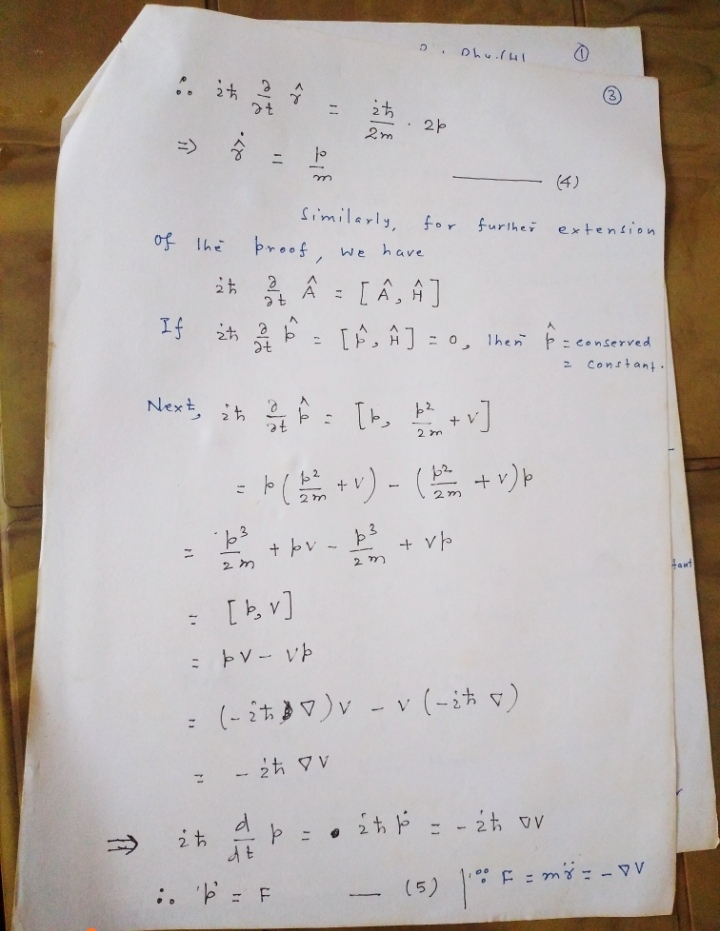 ①
③
∴ iħ ∂/∂t r̂ = iħ/2m · 2p
=> r̂̇ = p/m ——— (4)
Similarly, for further extension
of the proof, we have
iħ ∂/∂t Â = [Â, Ĥ]
If iħ ∂/∂t p̂ = [p̂, Ĥ] = 0, then p̂ = conserved
= constant.
Next, iħ ∂/∂t p̂ = [p, p²/2m + V]
= p(p²/2m + V) - (p²/2m + V)p
= p³/2m + pV - p³/2m + Vp
= [p, V]
= pV - Vp
= (-iħ ∇)V - V(-iħ ∇)
= -iħ ∇V
=> iħ d/dt p = iħ ṗ = -iħ ∇V
∴ ṗ = F — (5) | ∵ F = mr̈ = -∇V